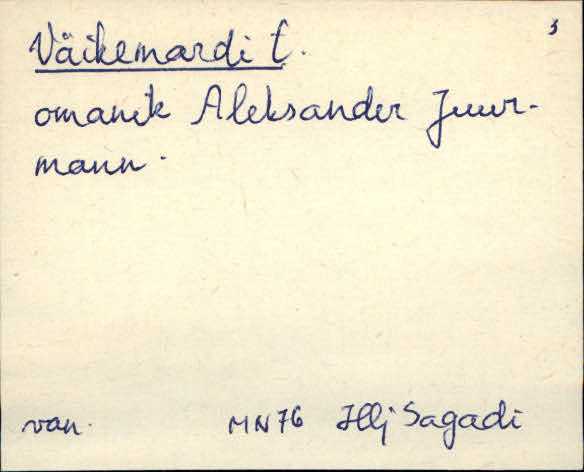 3
Väikemardi t.
omanik Aleksander Juur-
mann.
van. MN76 Hlj Sagadi